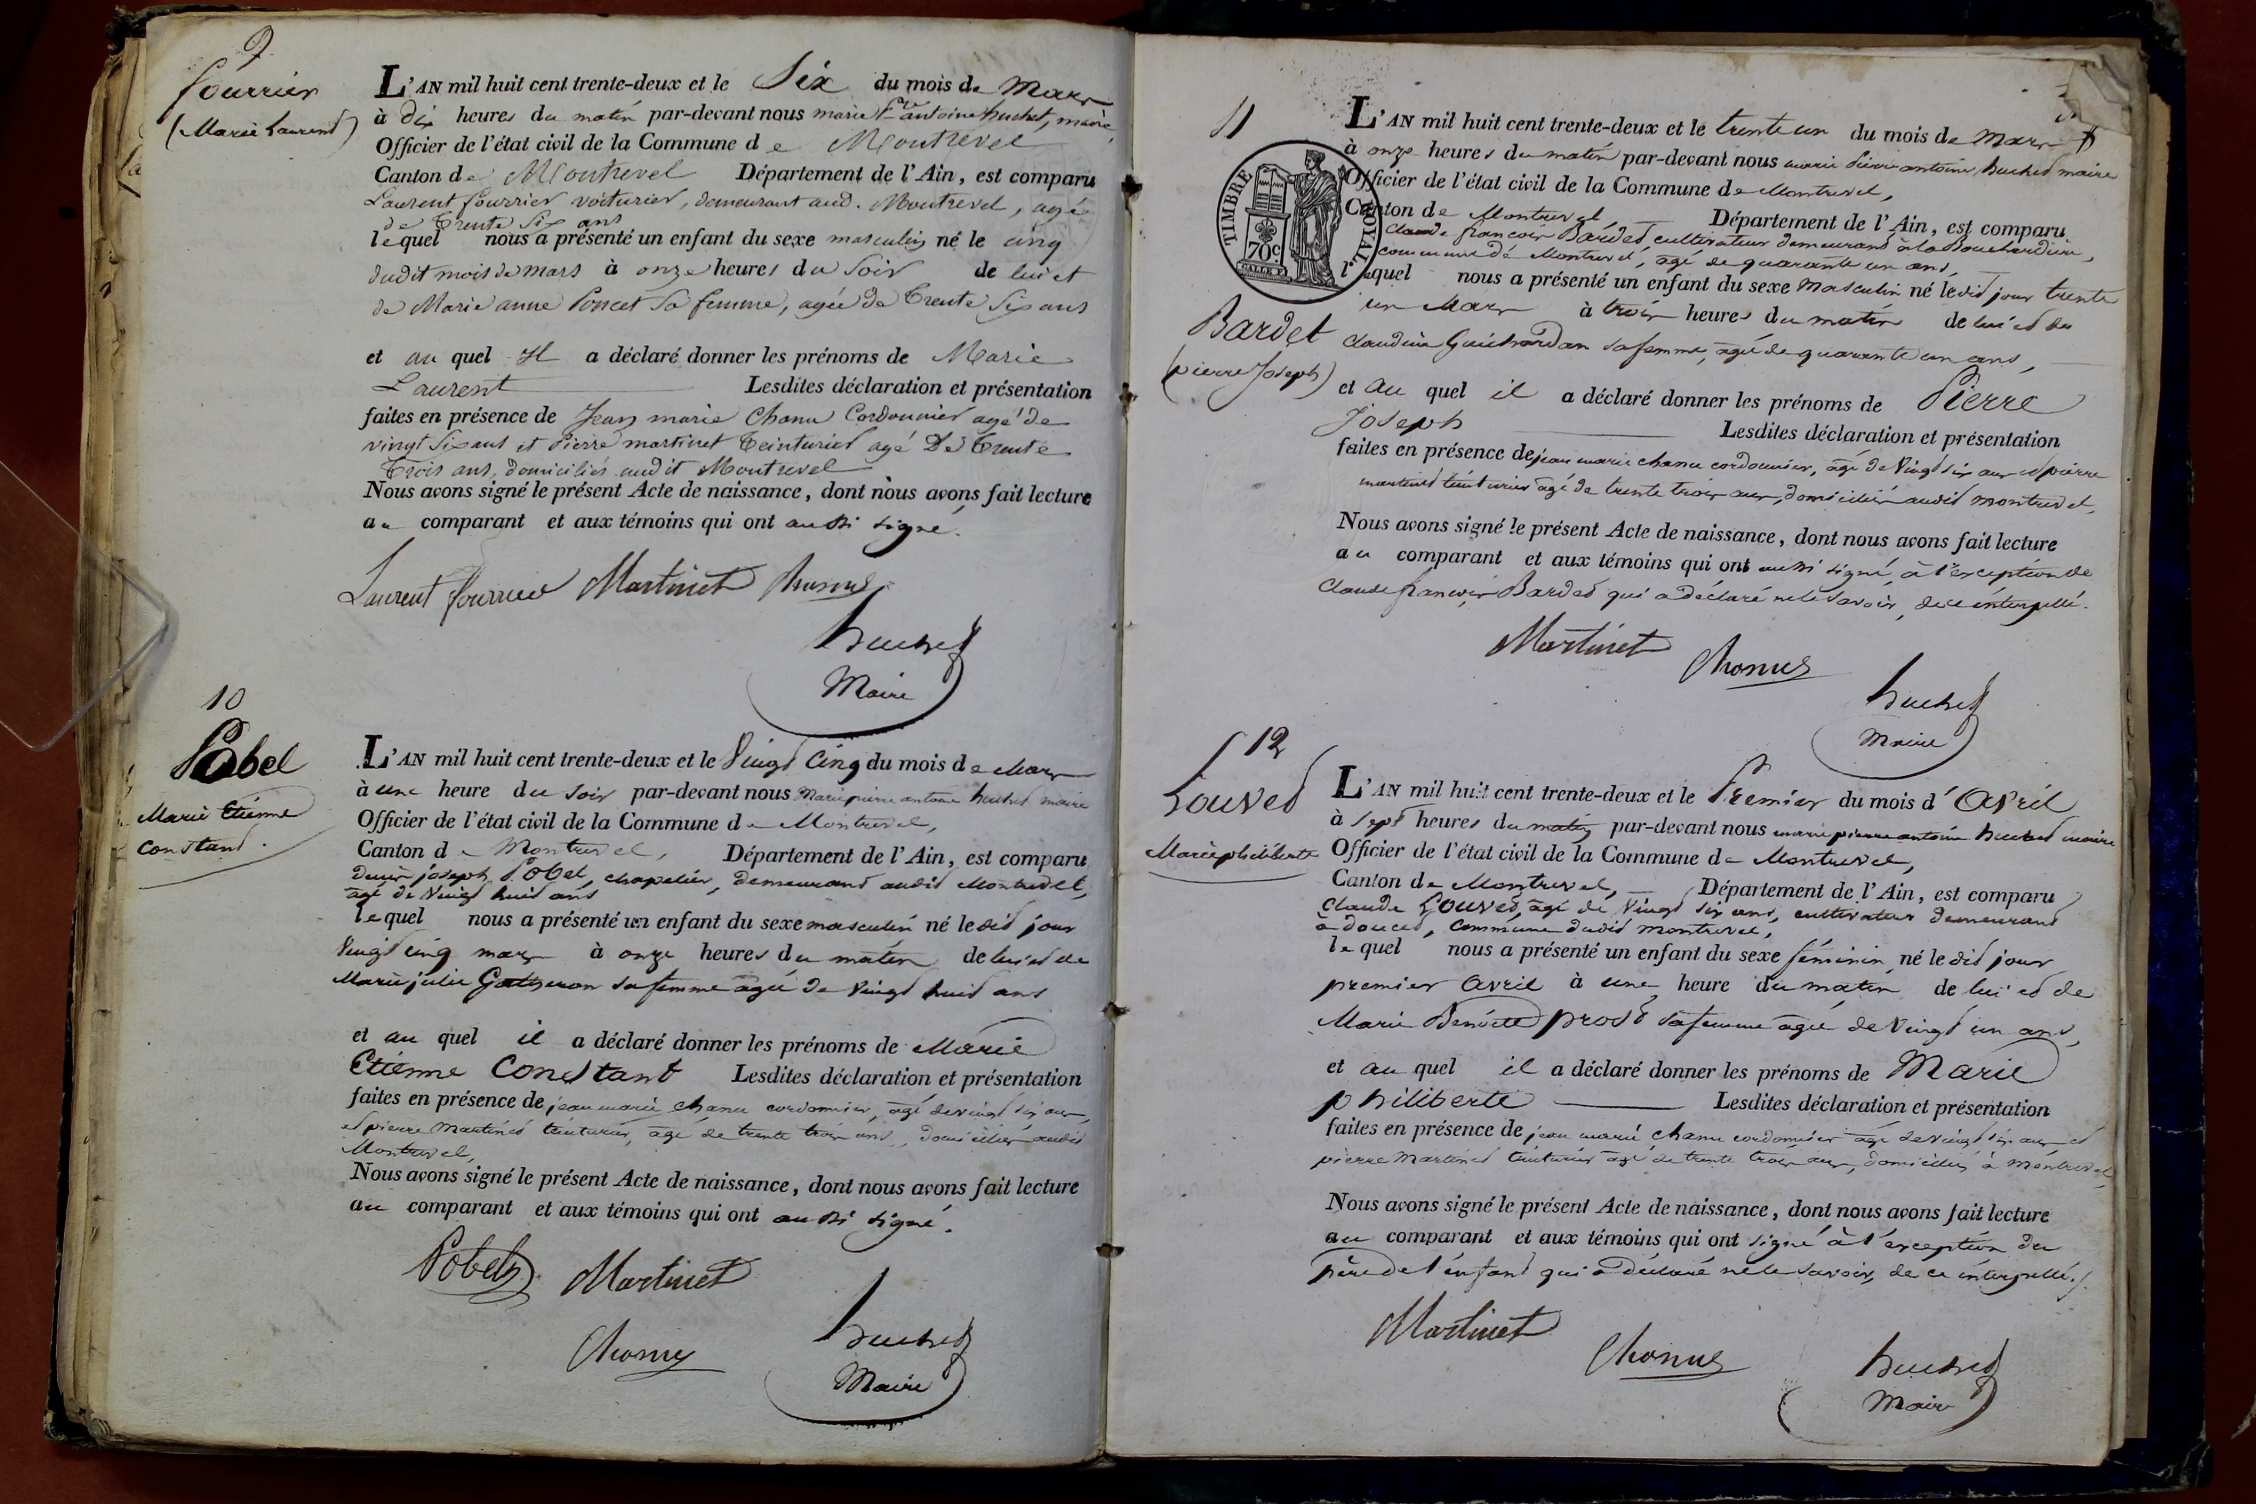 9
fourrier
(Marie Laurent)
L'AN mil huit cent trente-deux et le Six du mois de Mars
à dix heures du matin par-devant nous marie Pre antoine huchet, maire
Officier de l'état civil de la Commune de Montrevel
Canton de Montrevel Département de l'Ain, est comparu
Laurent fourrier voiturier, demeurant aud. Montrevel, agé
de Trente Six ans
lequel nous a présenté un enfant du sexe masculin né le cinq
dudit mois de mars à onze heures du Soir de lui et
de Marie anne Poncet Sa femme, agée de Trente Six ans
et au quel Il a déclaré donner les prénoms de Marie
Laurent Lesdites déclaration et présentation
faites en présence de Jean marie Chanu Cordonnier agé de
vingt Six ans et Pierre martinet Teinturier agé De Trente
Trois ans, domiciliés audit Montrevel
Nous avons signé le présent Acte de naissance, dont nous avons fait lecture
au comparant et aux témoins qui ont aussi signé.
Laurent fourrier Martinet Chanu
huchet
Maire
10
Pobel
Marie Etienne
Constant.
L'AN mil huit cent trente-deux et le Vingt Cinq du mois de Mars
à une heure du Soir par-devant nous Marie pierre antoine huchet maire
Officier de l'état civil de la Commune de Montrevel,
Canton de Montrevel, Département de l'Ain, est comparu
joseph Pobel, chapelier, demeurant audit Montrevel,
agé de Vingt huit ans
lequel nous a présenté un enfant du sexe masculin né ledit jour
Vingt cinq mars à onze heures du matin de lui et de
Marie julie Gatheron sa femme agée de Vingt huit ans
et au quel il a déclaré donner les prénoms de Marie
Etienne Constant Lesdites déclaration et présentation
faites en présence de jean marie chanu cordonnier, agé de vingt six ans,
et pierre Martinet teinturier, agé de trente trois ans, domiciliés audit
Montrevel,
Nous avons signé le présent Acte de naissance, dont nous avons fait lecture
au comparant et aux témoins qui ont aussi signé.
Pobel Martinet
Chanu
huchet
Maire
11
TIMBRE ROYAL
70c
Bardet
(pierre Joseph)
L'AN mil huit cent trente-deux et le trente un du mois de Mars
à onze heures du matin par-devant nous marie Pierre antoine huchet maire
Officier de l'état civil de la Commune de Montrevel,
Canton de Montrevel, Département de l'Ain, est comparu
Claude françois Bardet, cultivateur demeurant à la Bouchardière,
commune de Montrevel, agé de quarante un ans,
lequel nous a présenté un enfant du sexe Masculin né ledit jour trente
un Mars à trois heures du matin de lui et de
claudine Guichardan sa femme, agée de quarante un ans,
et au quel il a déclaré donner les prénoms de Pierre
Joseph Lesdites déclaration et présentation
faites en présence de jean marie chanu cordonnier, agé de Vingt six ans et pierre
martinet teinturier agé de trente trois ans, domiciliés audit montrevel,
Nous avons signé le présent Acte de naissance, dont nous avons fait lecture
au comparant et aux témoins qui ont aussi signé, à l'exception de
Claude françois Bardet qui a déclaré ne le savoir, de ce interpellé.
Martinet
Chanu
huchet
Maire
12
Louvet
Marie philiberte
L'AN mil huit cent trente-deux et le Premier du mois d'Avril
à Sept heures du matin par-devant nous marie pierre antoine huchet maire
Officier de l'état civil de la Commune de Montrevel,
Canton de Montrevel, Département de l'Ain, est comparu
Claude Louvet, agé de Vingt six ans, cultivateur demeurant
à doucet, Commune dudit montrevel,
lequel nous a présenté un enfant du sexe féminin né ledit jour
premier Avril à une heure du matin de lui et de
Marie Benoite prost sa femme agée de Vingt un ans,
et au quel il a déclaré donner les prénoms de Marie
philiberte Lesdites déclaration et présentation
faites en présence de jean marie chanu cordonnier agé de vingt six ans et
pierre Martinet teinturier agé de trente trois ans, domiciliés à Montrevel,
Nous avons signé le présent Acte de naissance, dont nous avons fait lecture
au comparant et aux témoins qui ont signé à l'exception du
Père de l'enfant qui a déclaré ne le savoir, de ce interpellé./.
Martinet
Chanu
huchet
Maire